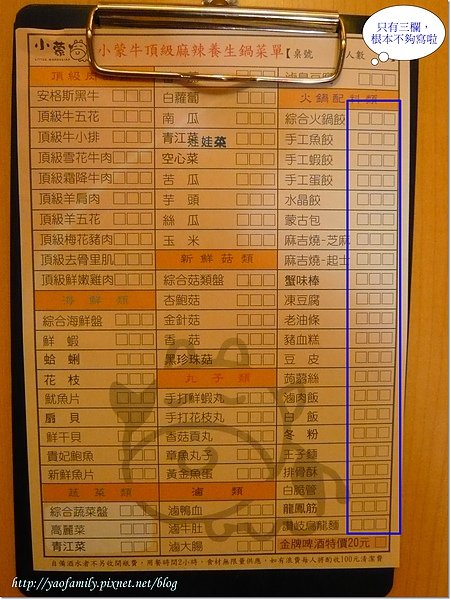 只有三欄，
根本不夠寫啦
小蒙牛頂級麻辣養生鍋菜單【桌號 人數
頂級肉
安格斯黑牛
頂級牛五花
頂級牛小排
頂級雪花牛肉
頂級霜降牛肉
頂級羊肩肉
頂級羊五花
頂級梅花豬肉
頂級去骨里肌
頂級鮮嫩雞肉
海鮮類
綜合海鮮盤
鮮蝦
蛤蜊
花枝
魷魚片
扇貝
鮮干貝
貴妃鮑魚
新鮮魚片
蔬菜類
綜合蔬菜盤
高麗菜
青江菜
白蘿蔔
南瓜
青江菜
娃娃菜
空心菜
苦瓜
芋頭
絲瓜
玉米
新鮮菇類
綜合菇類盤
杏鮑菇
金針菇
香菇
黑珍珠菇
丸子類
手打鮮蝦丸
手打花枝丸
香菇貢丸
章魚丸子
黃金魚蛋
滷類
滷鴨血
滷牛肚
滷大腸
火鍋配料類
綜合火鍋餃
手工魚餃
手工蝦餃
手工蛋餃
水晶餃
蒙古包
麻吉燒-芝麻
麻吉燒-起士
蟹味棒
凍豆腐
老油條
豬血糕
豆皮
蒟蒻絲
滷肉飯
白飯
冬粉
王子麵
排骨酥
白脆管
龍鳳筋
讚岐烏龍麵
金牌啤酒特價20元
自備酒水者不另收開瓶費，用餐時間2小時，食材無限量供應，如有浪費每人將酌收100元清潔費
http://yaofamily.pixnet.net/blog